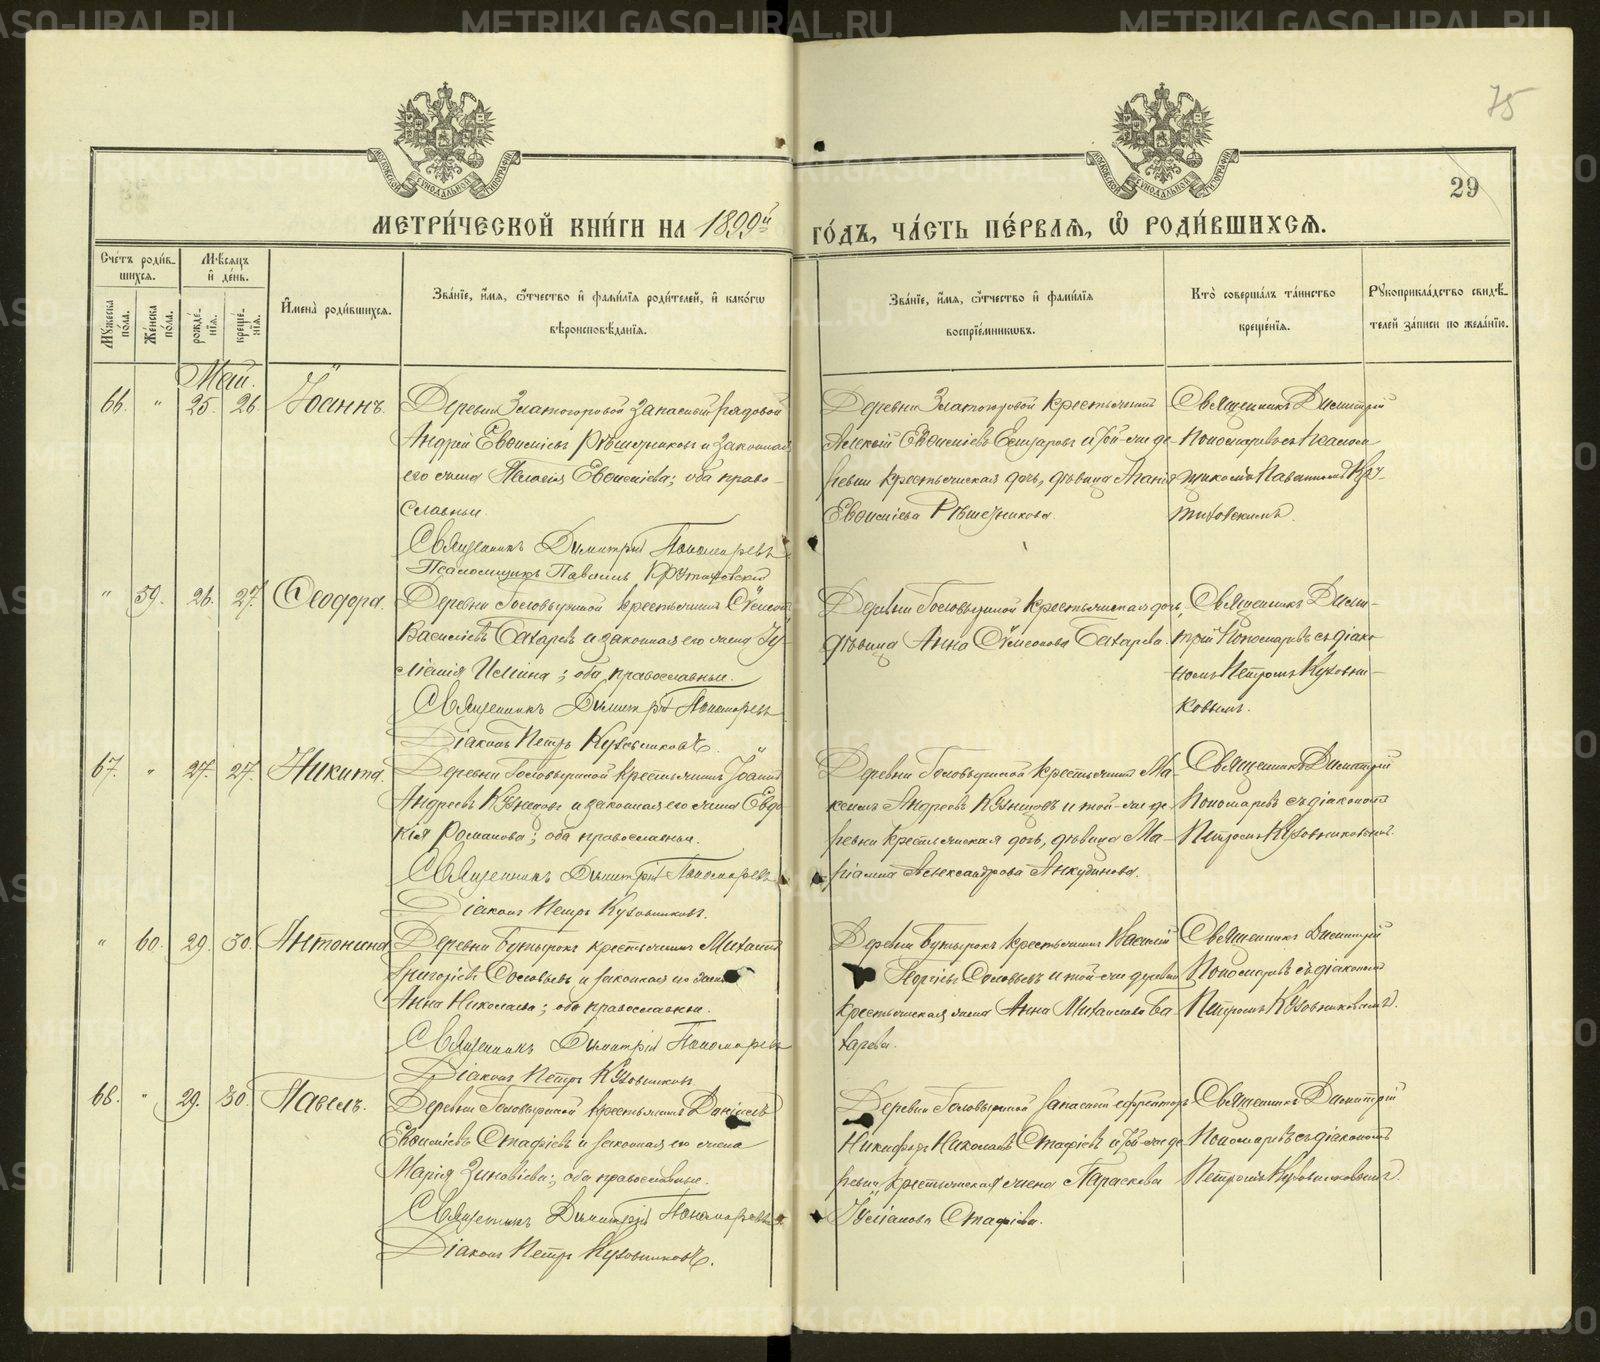 METRIKI.GASO-URAL.RU
75
29
МОСКОВСКОЙ СѴНОДАЛЬНОЙ ТИПОГРАФІИ
МЕТРИ́ЧЕСКОЙ КНИ́ГИ НА 1899й
ГО́ДЪ, ЧА́СТЬ ПЕ́РВАЯ, Ѡ РОДИ́ВШИХСЯ.
Сче́тъ роди́вшихся.
Мꙋ́жеска по́ла.
Же́нска по́ла.
Мѣ́сяцъ и҆ де́нь.
рожде́нїя.
креще́нїя.
И҆мена̀ роди́вшихся.
Зва́нїе, и҆́мя, ѻ҆́тчество и҆ фами́лїя роди́телей, и҆ како́гѡ
вѣроисповѣ́данїя.
Зва́нїе, и҆́мя, ѻ҆́тчество и҆ фами́лїя
воспрїе́мникѡвъ.
Кто̀ соверша́лъ та́инство
креще́нїя.
Рꙋкоприкла́дство свидѣ́-
телей за́писи по жела́нїю.
Май.
66. " 25. 26. Іоаннъ.
Деревни Златогоровой запасный рядовой
Андрей Евѳиміевъ Рѣшетниковъ и законная
его жена Пелагія Евѳиміева; оба право-
славные.
Священникъ Димитрій Пономаревъ
Псаломщикъ Павлинъ Крутиховскій
Деревни Златогоровой крестьянинъ
Алексій Евѳиміевъ и той-же де-
ревни крестьянская дочь, дѣвица
Евѳиміева Рѣшетникова.
Священникъ Димитрій
Пономаревъ съ псалом-
щикомъ Павлиномъ Кру-
тиховскимъ.
" 59. 26. 27. Ѳеодора.
Деревни Головыриной крестьянинъ Сѵмеонъ
Василіевъ Бахаревъ и законная его жена Іу-
ліанія; оба православные.
Священникъ Димитрій Пономаревъ
Діаконъ Петръ Кузовниковъ.
Деревни Головыриной крестьянская дочь,
дѣвица Анна Сѵмеонова Бахарева.
Священникъ Дими-
трій Пономаревъ съ діако-
номъ Петромъ Кузовни-
ковымъ.
67. " 27. 27. Никита.
Деревни Головыриной крестьянинъ Іоаннъ
Андреевъ Кузнецовъ и законная его жена Евдо-
кія Романова; оба православные.
Священникъ Димитрій Пономаревъ
Діаконъ Петръ Кузовниковъ.
Деревни Головыриной крестьянинъ Ма-
ксимъ Андреевъ Кузнецовъ и той-же де-
ревни крестьянская дочь, дѣвица Ма-
ріамна Александрова Анкудинова.
Священникъ Димитрій
Пономаревъ съ діакономъ
Петромъ Кузовниковымъ.
" 60. 29. 30. Антонина
Деревни Бутырокъ крестьянинъ Михаилъ
Григоріевъ Соловьевъ и законная его жена
Анна Николаева; оба православные.
Священникъ Димитрій Пономаревъ
Діаконъ Петръ Кузовниковъ
Деревни Бутырокъ крестьянинъ Василій
Георгіевъ Соловьевъ и той-же деревни
крестьянская жена Анна Михаилова Ба-
харева.
Священникъ Димитрій
Пономаревъ съ діакономъ
Петромъ Кузовниковымъ.
68. " 29. 30. Павелъ.
Деревни Головыриной крестьянинъ Даніилъ
Евѳиміевъ Стафіевъ и законная его жена
Марія Зиновіева; оба православные.
Священникъ Димитрій Пономаревъ
Діаконъ Петръ Кузовниковъ.
Деревни Головыриной запасный ефрейторъ
Никифоръ Николаевъ Стафіевъ и той-же де-
ревни крестьянская жена Параскева
Іуліанова Стафіева.
Священникъ Димитрій
Пономаревъ съ діакономъ
Петромъ Кузовниковымъ.